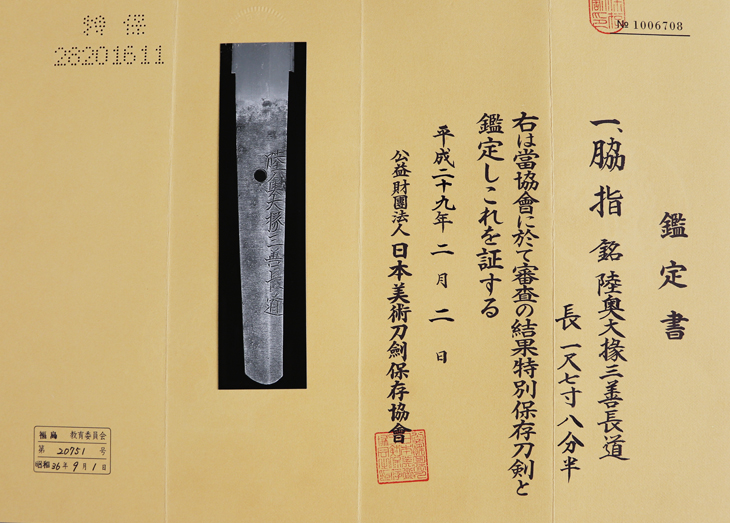 鑑定書
№ 1006708
一、脇指 銘 陸奥大掾三善長道
長 一尺七寸八分半
右は當協會に於て審査の結果特別保存刀剣と
鑑定しこれを証する
平成二十九年 二 月 二 日
公益財團法人 日本美術刀劍保存協會
陸奥大掾三善長道
特 保
28201611
福島 教育委員会
第 20751 号
昭和36年9月1日